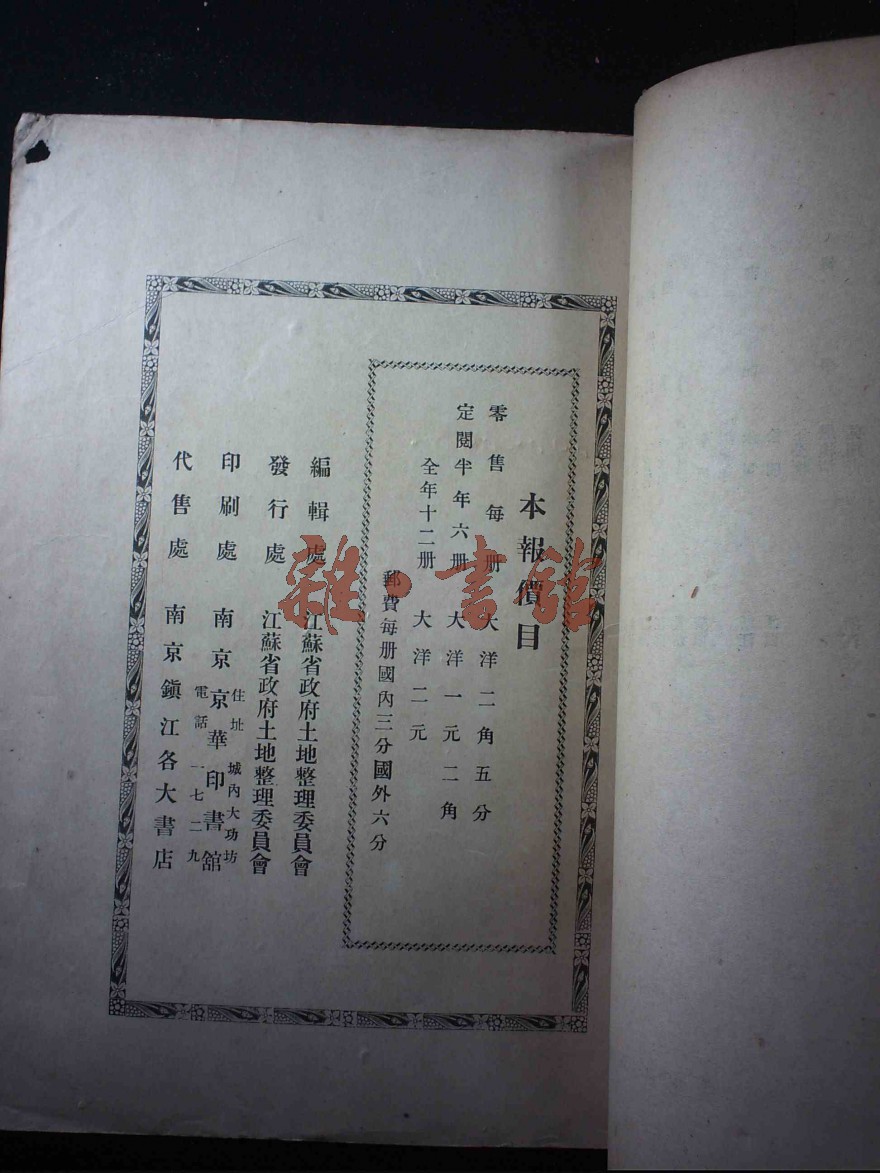 本報價目
零售每册 大洋二角五分
定閱半年六册 大洋一元二角
全年十二册 大洋二元
郵費每册國內三分國外六分
編輯處 江蘇省政府土地整理委員會
發行處 江蘇省政府土地整理委員會
印刷處 南京京華印書舘
住址 城內大功坊
電話 一七二九
代售處 南京鎭江各大書店
雜·書舘